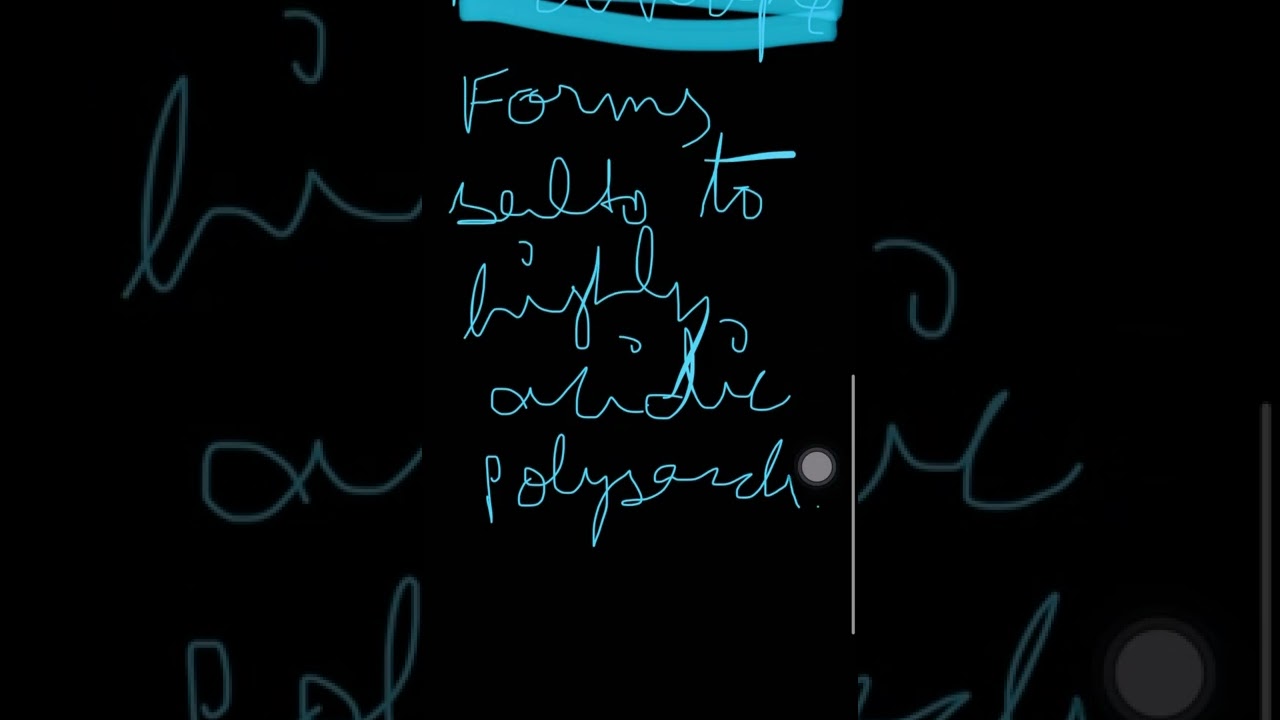 Forms
salts to
highly
acidic
polysacch.